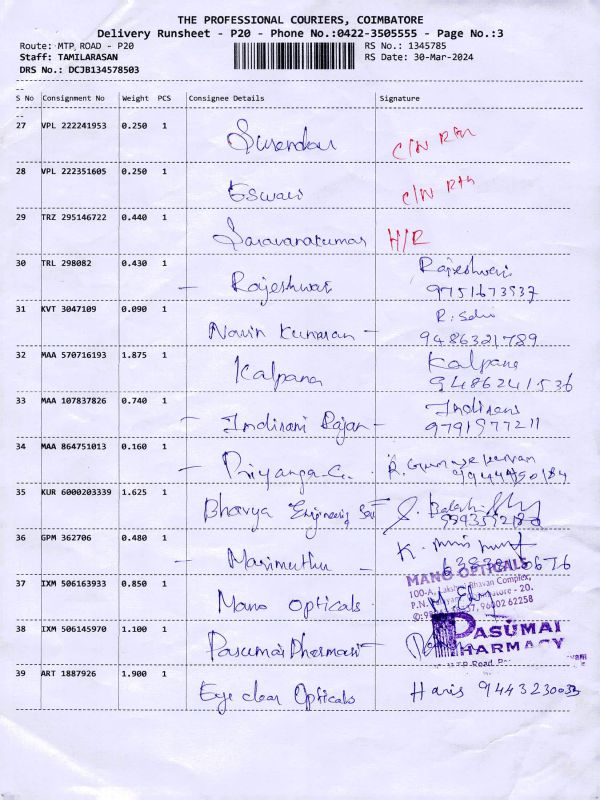 THE PROFESSIONAL COURIERS, COIMBATORE
Delivery Runsheet - P20 - Phone No.:0422-3505555 - Page No.:3
Route: MTP ROAD - P20
RS No.: 1345785
Staff: TAMILARASAN
RS Date: 30-Mar-2024
DRS No.: DCJB134578503
S No Consignment No Weight PCS Consignee Details Signature
27 VPL 222241953 0.250 1 Surendar C/N
28 VPL 222351605 0.250 1 Eswari C/N
29 TRZ 295146722 0.440 1 Saravanakumar H/R
30 TRL 298082 0.430 1 - Rajeshwari Rajeshwari
9751673537
31 KVT 3047109 0.090 1 Navin Kumaran - R. Selvi
9486321789
32 MAA 570716193 1.875 1 Kalpana Kalpana
9486241536
33 MAA 107837826 0.740 1 - Indirani Rajan - Indirani
9791977211
34 MAA 864751013 0.160 1 - Priyanga.G.
35 KUR 6000203339 1.625 1 Bhavya Engineering
36 GPM 362706 0.480 1 - Marimuthu K.
37 IXM 506163933 0.850 1 Mano Opticals
MANO OPTICALS
100-A, Bhavan Complex,
38 IXM 506145970 1.100 1 Pasumai Pharmacy
PASUMAI
PHARMACY
39 ART 1887926 1.900 1 Eye clear Opticals Haris